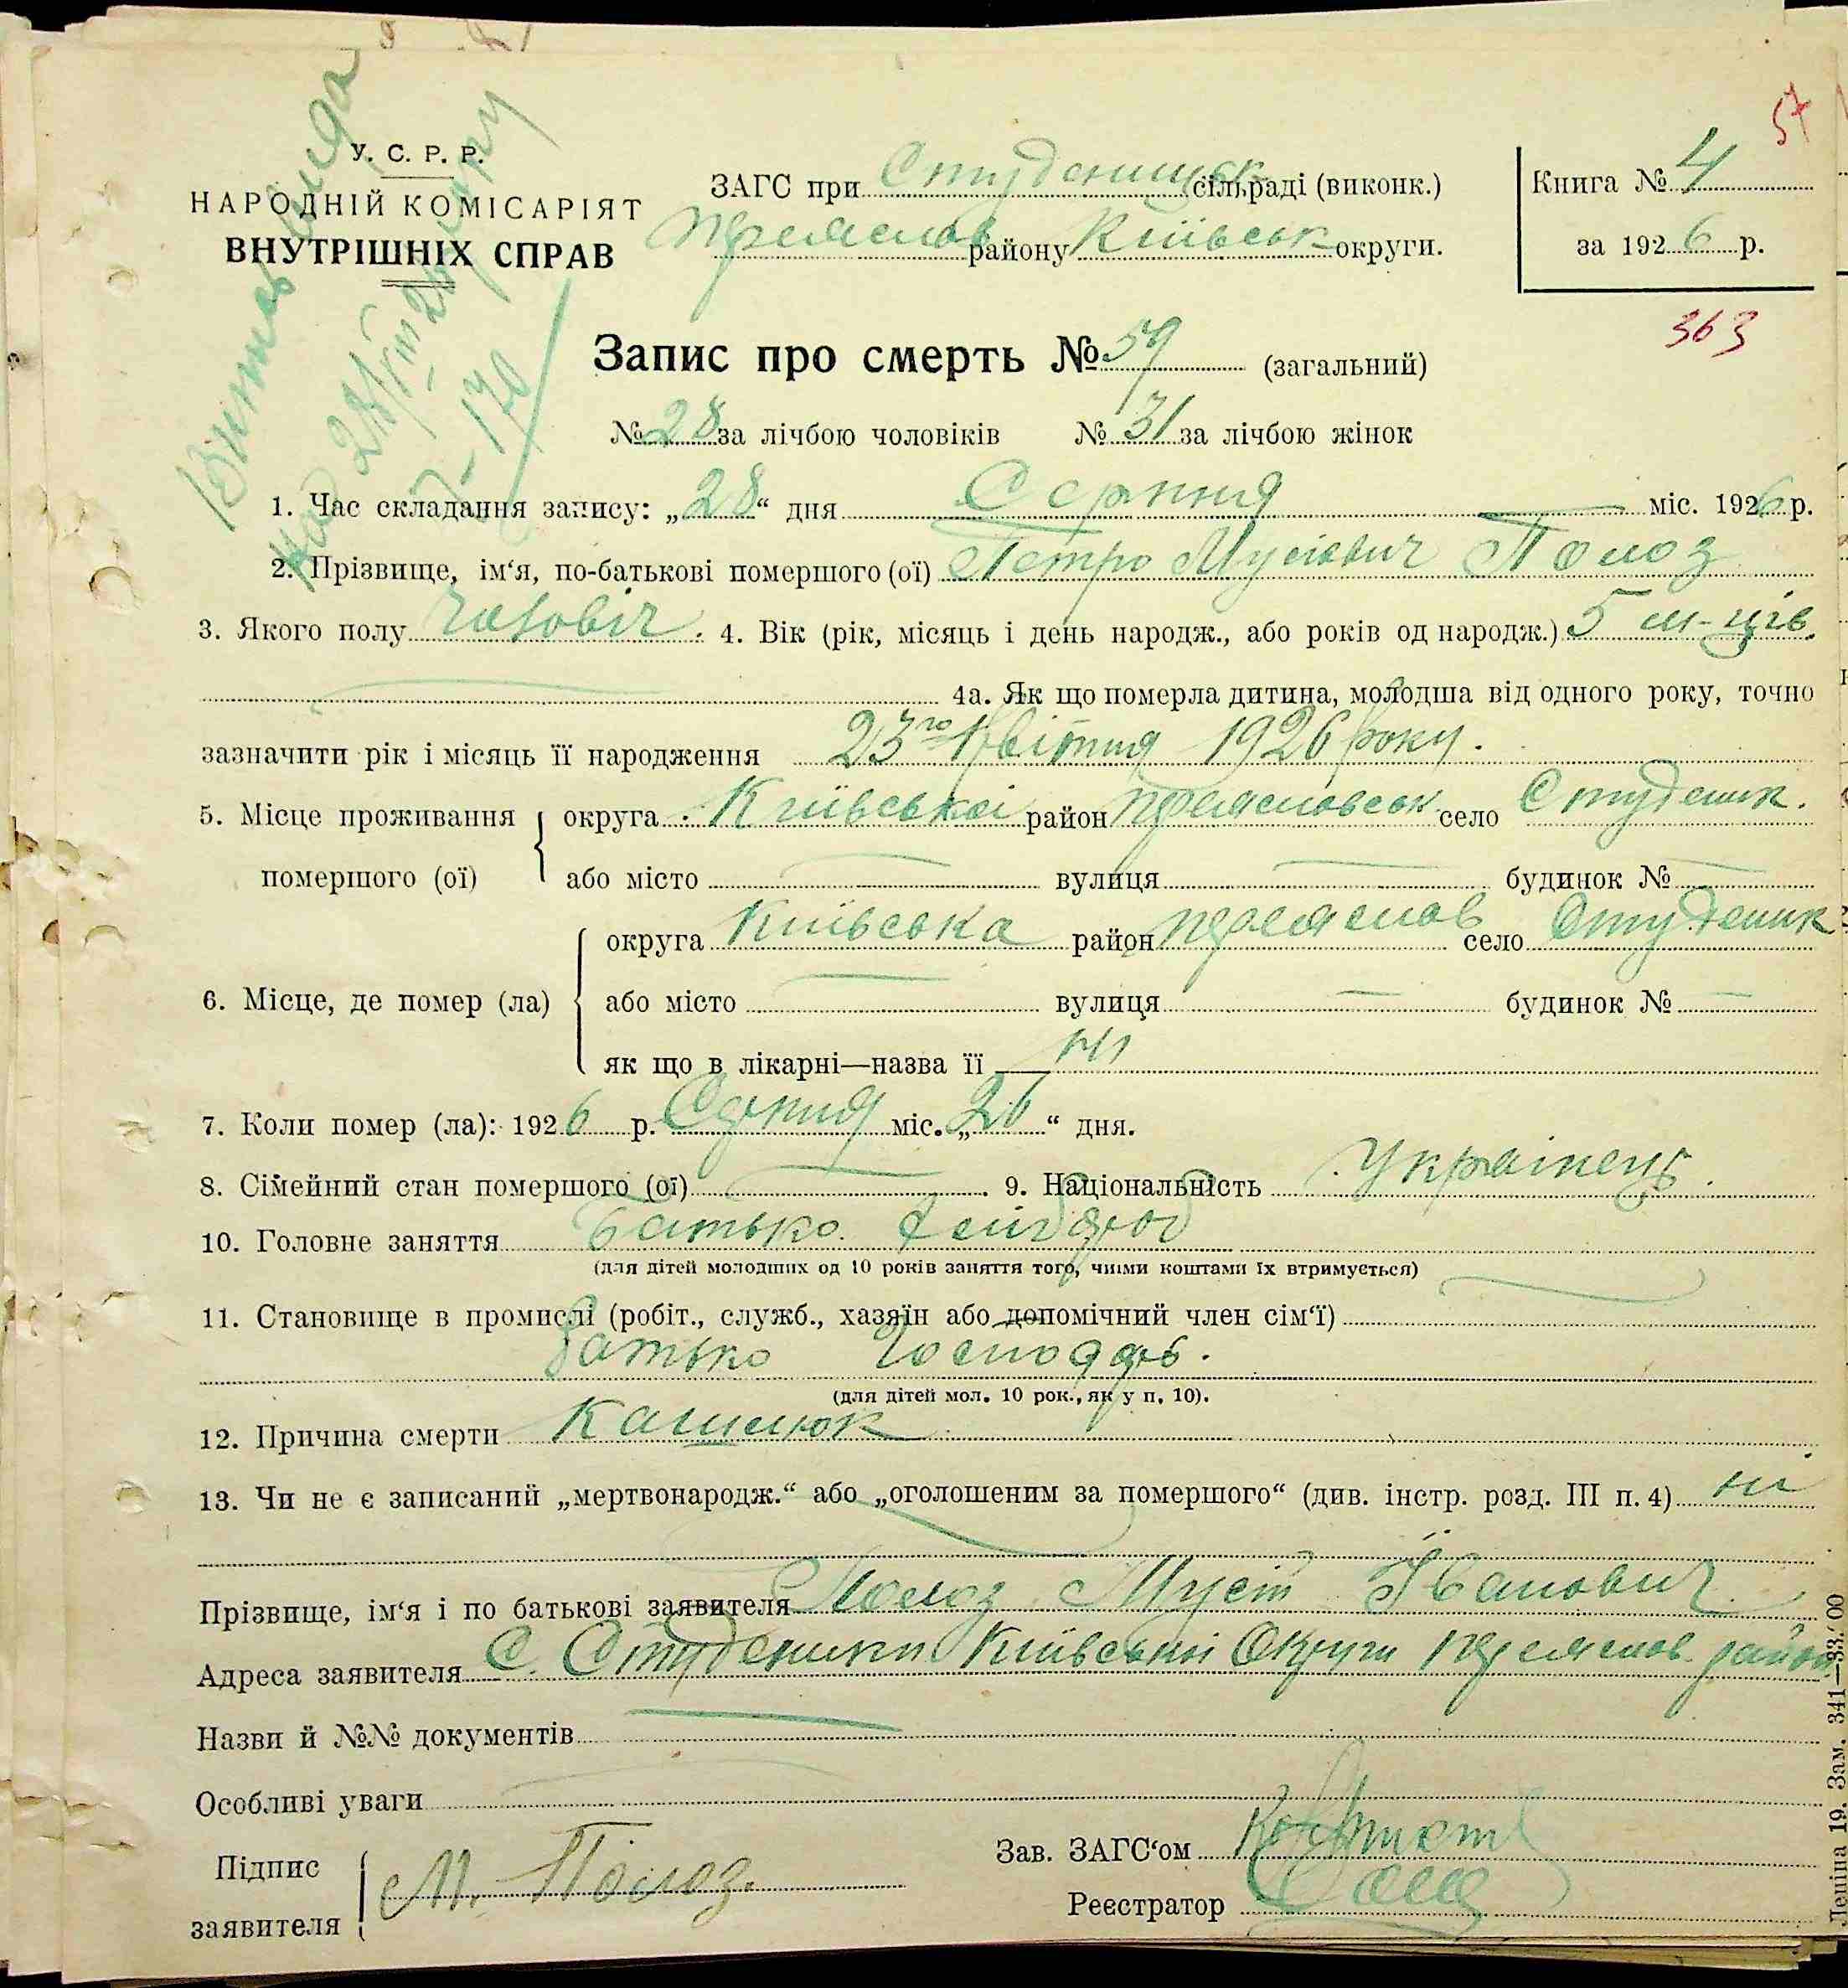 57
У. С. Р. Р.
НАРОДНІЙ КОМІСАРІЯТ
ВНУТРІШНІХ СПРАВ
ЗАГС при Студеницьк сільраді (виконк.)
району Київськ округи.
Книга № 4
за 1926 р.
363
Запис про смерть № 59 (загальний)
№ 28 за лічбою чоловіків № 31 за лічбою жінок
1. Час складання запису: „28“ дня Серпня міс. 1926 р.
2. Прізвище, ім‘я, по-батькові помершого (ої) Петро Мусієвич Полоз
3. Якого полу чоловіч. 4. Вік (рік, місяць і день народж., або років од народж.) 5 м-ців.
4а. Як що померла дитина, молодша від одного року, точно
зазначити рік і місяць її народження 23го Квітня 1926 року.
5. Місце проживання помершого (ої) округа Київської район село Студеник.
або місто — вулиця — будинок № —
6. Місце, де помер (ла) округа Київська район село Студеник
або місто — вулиця — будинок № —
як що в лікарні—назва її ні
7. Коли помер (ла): 1926 р. Серпня міс. „26“ дня.
8. Сімейний стан помершого (ої) — 9. Національність Українець.
10. Головне заняття Батько хлібороб
(для дітей молодших од 10 років заняття того, чиїми коштами їх втримується)
11. Становище в промислі (робіт., служб., хазяїн або допомічний член сім‘ї)
батько Господарь.
(для дітей мол. 10 рок., як у п. 10).
12. Причина смерти Кашлюк
13. Чи не є записаний „мертвонародж.“ або „оголошеним за помершого“ (див. інстр. розд. III п. 4) ні
Прізвище, ім‘я і по батькові заявителя Полоз Мусій Іванович
Адреса заявителя С. Студеники Київської Округи район
Назви й №№ документів —
Особливі уваги
Підпис заявителя М. Полоз.
Зав. ЗАГС‘ом
Реєстратор
Леніна 19. Зам. 341—33.‘00